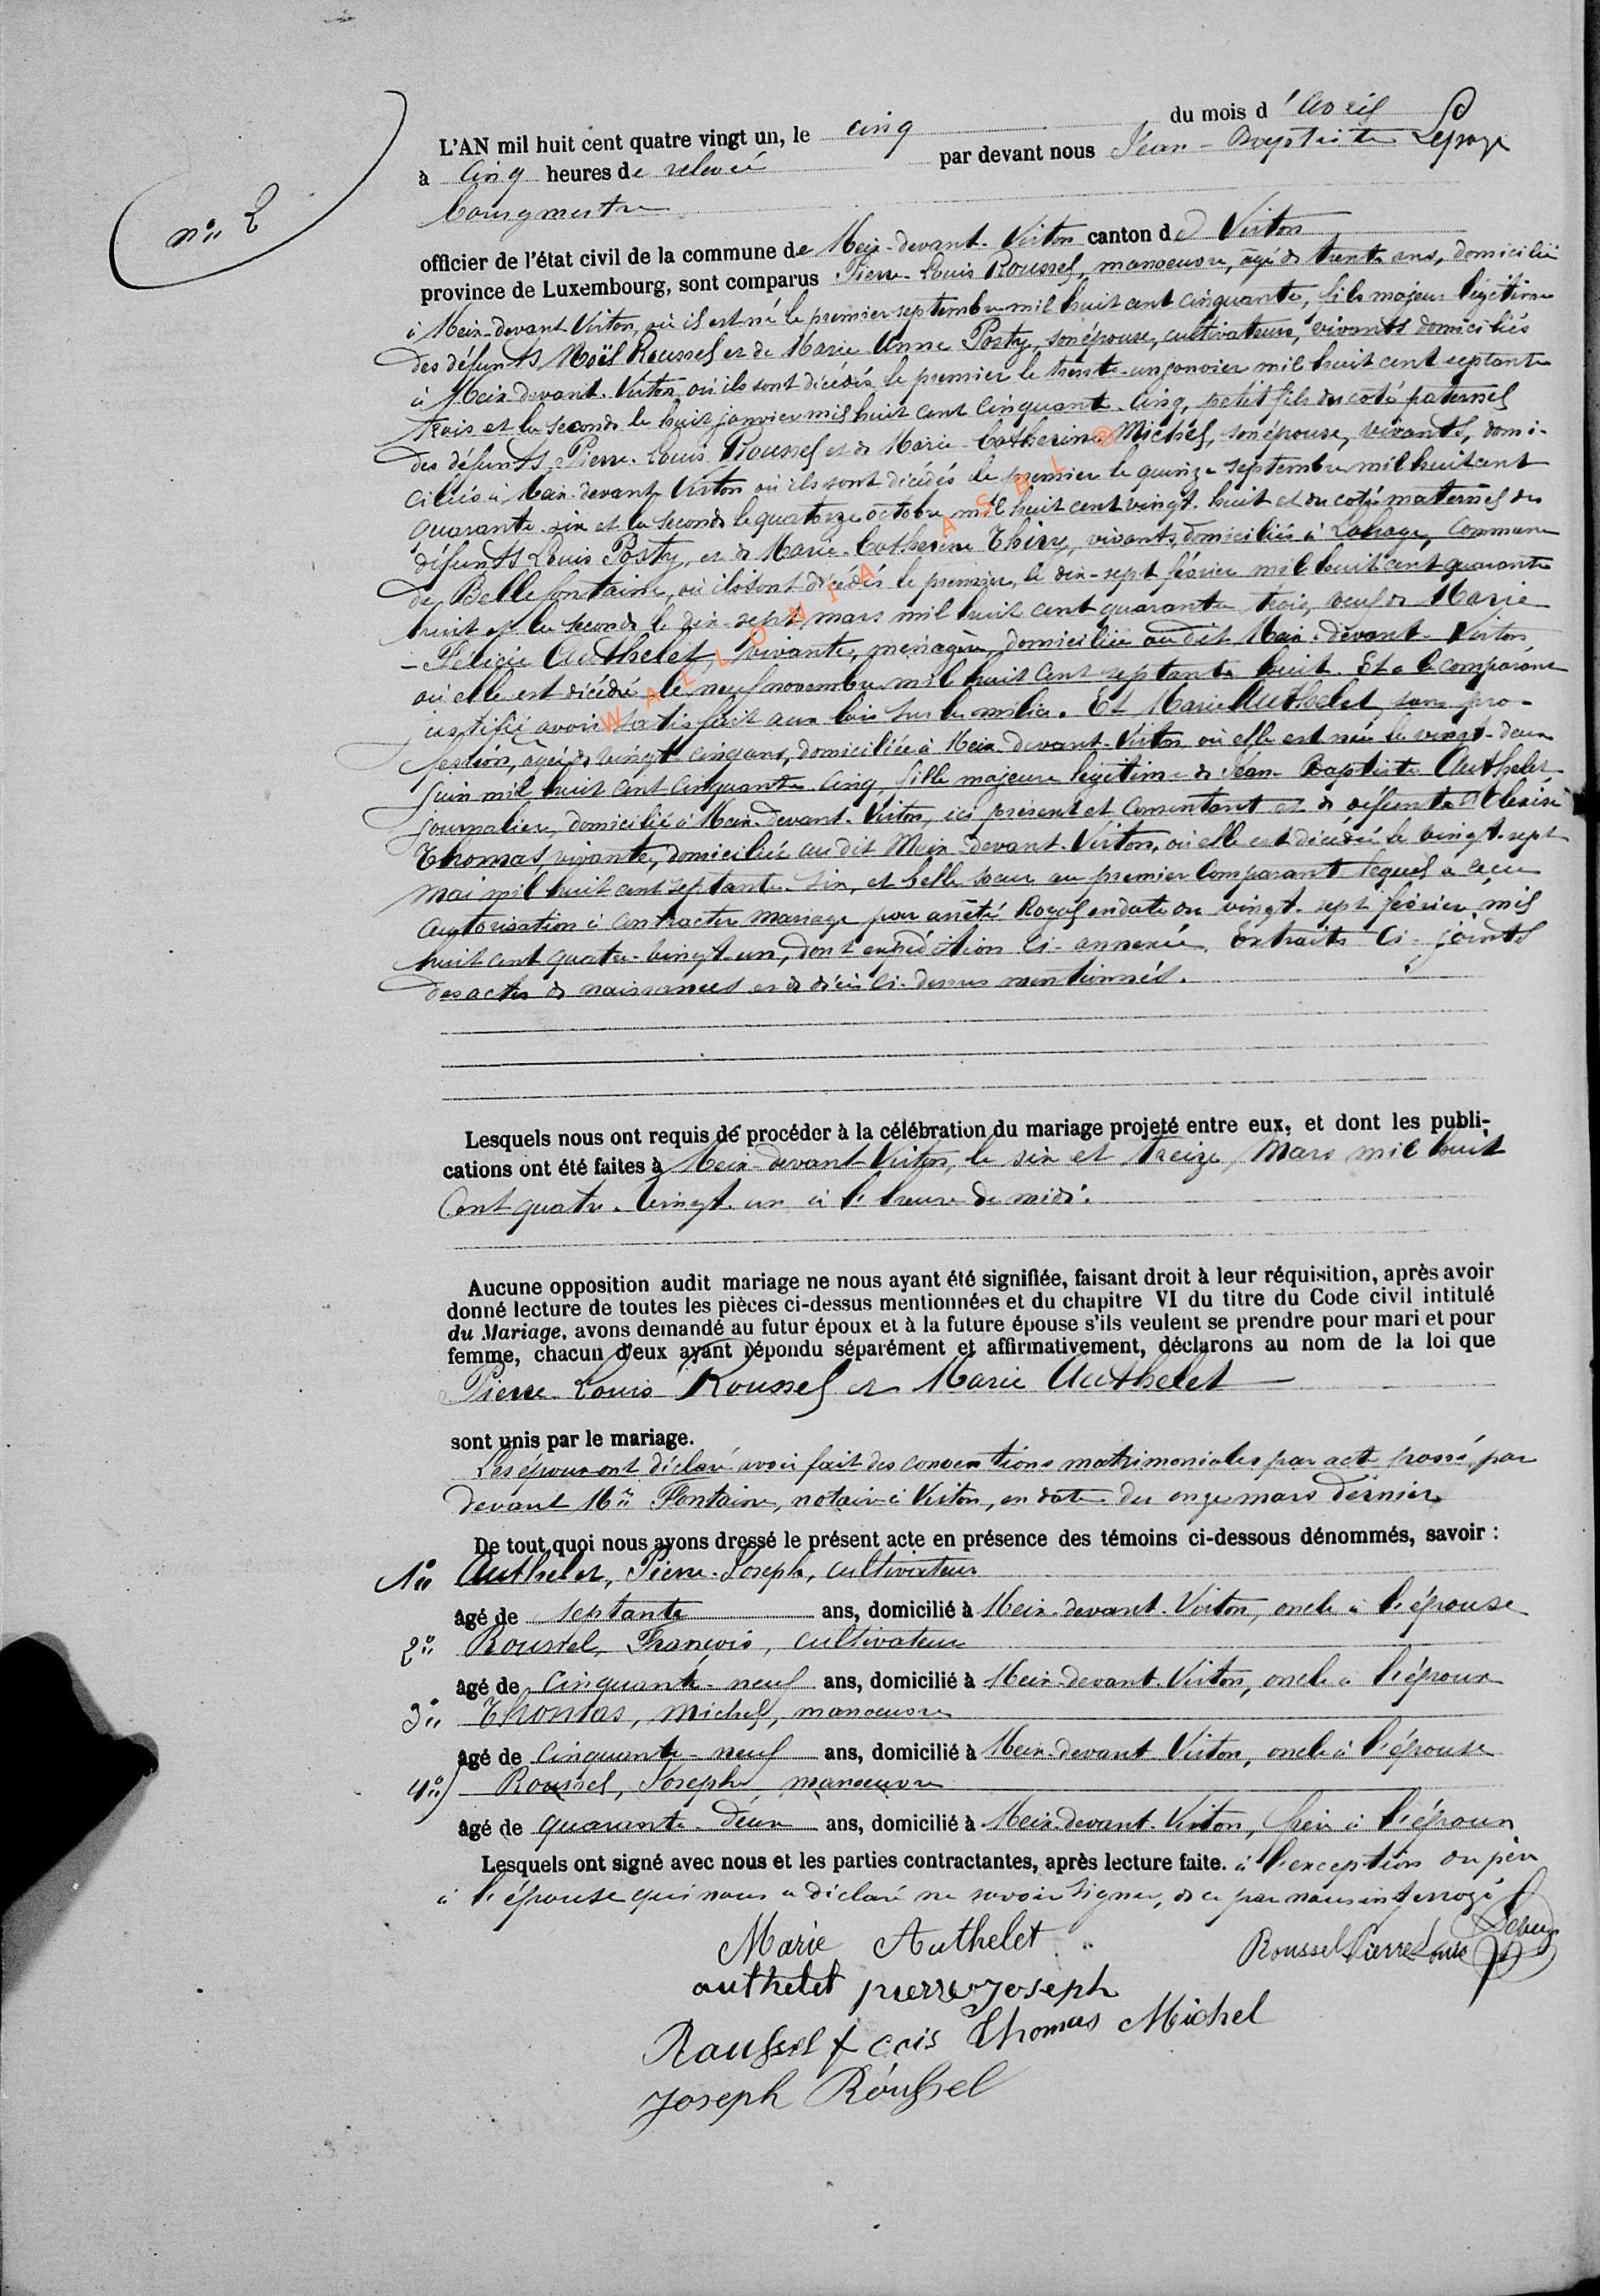 n° 2
L'AN mil huit cent quatre vingt un, le cinq du mois d'avril
à cinq heures de relevée par devant nous Jean-Baptiste Lepage
bourgmestre
officier de l'état civil de la commune de Meix-devant-Virton canton de Virton
province de Luxembourg, sont comparus Pierre-Louis Roussel, manoeuvre, âgé de trente ans, domicilié
à Meix-devant Virton, où il est né le premier septembre mil huit cent cinquante, fils majeur légitime
des défunts Noël Roussel et de Marie Anne Posty, son épouse, cultivateurs, vivants domiciliés
à Meix-devant-Virton où ils sont décédés le premier le trente-un janvier mil huit cent septante
trois et la seconde le huit janvier mil huit cent cinquante-cinq, petit fils du coté paternel
des défunts Pierre-Louis Roussel et de Marie-Catherine Michel, son épouse, vivants, domi-
ciliés à Meix-devant-Virton où ils sont décédés le premier le quinze septembre mil huit cent
quarante-six et la seconde le quatorze octobre mil huit cent vingt-huit et du coté maternel des
défunts Louis Posty, et de Marie-Catherine Thiry, vivants, domiciliés à Lahage, commune
de Bellefontaine, où ils sont décédés le premier, le dix-sept février mil huit cent quarante
huit et la seconde le dix-sept mars mil huit cent quarante trois, veuf de Marie
-Félicie Authelet, vivante, ménagère, domiciliée au dit Meix-devant-Virton,
où elle est décédée le neuf novembre mil huit cent septante huit. Et a le comparant
justifié avoir satisfait aux lois sur la milice. Et Marie Authelet, sans pro-
fession, âgée de vingt cinq ans, domiciliée à Meix-devant-Virton où elle est née le vingt-deux
juin mil huit cent cinquante cinq, fille majeure légitime de Jean-Baptiste Authelet
journalier, domicilié à Meix-devant-Virton, ici présent et consentant et de défunte
Thomas, vivante, domiciliée au dit Meix-devant-Virton, où elle est décédée le vingt-sept
mai mil huit cent septante-six, et belle soeur au premier comparant lequel a reçu
autorisation à contracter mariage par arrêté Royal en date du vingt-sept février mil
huit cent quatre-vingt-un, dont expédition ci-annexée. Extraits ci-joints
des actes de naissances et de décès ci-dessus mentionnés.
Lesquels nous ont requis de procéder à la célébration du mariage projeté entre eux, et dont les publi-
cations ont été faites à Meix-devant-Virton, le six et treize Mars mil huit
Cent quatre-vingt-un à l'heure de midi.
Aucune opposition audit mariage ne nous ayant été signifiée, faisant droit à leur réquisition, après avoir
donné lecture de toutes les pièces ci-dessus mentionnées et du chapitre VI du titre du Code civil intitulé
du Mariage, avons demandé au futur époux et à la future épouse s'ils veulent se prendre pour mari et pour
femme, chacun d'eux ayant répondu séparément et affirmativement, déclarons au nom de la loi que
Pierre Louis Roussel et Marie Authelet
sont unis par le mariage.
Les époux ont déclaré avoir fait des conventions matrimoniales par acte passé, par
devant Me Fontaine, notaire à Virton, en date du onze mars dernier
De tout quoi nous avons dressé le présent acte en présence des témoins ci-dessous dénommés, savoir :
1° Authelet, Pierre-Joseph, cultivateur
âgé de septante ans, domicilié à Meix-devant-Virton, oncle à l'épouse
2° Roussel, François, cultivateur
âgé de cinquante-neuf ans, domicilié à Meix-devant-Virton, oncle à l'époux
3° Thomas, Michel, manoeuvre
âgé de cinquante-neuf ans, domicilié à Meix-devant Virton, oncle à l'épouse
4° Roussel, Joseph, manoeuvre
âgé de quarante-deux ans, domicilié à Meix-devant-Virton, frère à l'époux
Lesquels ont signé avec nous et les parties contractantes, après lecture faite. à l'exception du père
à l'épouse qui nous a déclaré ne savoir signer, de ce par nous interrogé
Marie Authelet
Roussel Pierre Louis Lepage
authelet pierre joseph
Roussel fcois Thomas Michel
Joseph Roussel
WALLONIA ASBL ®